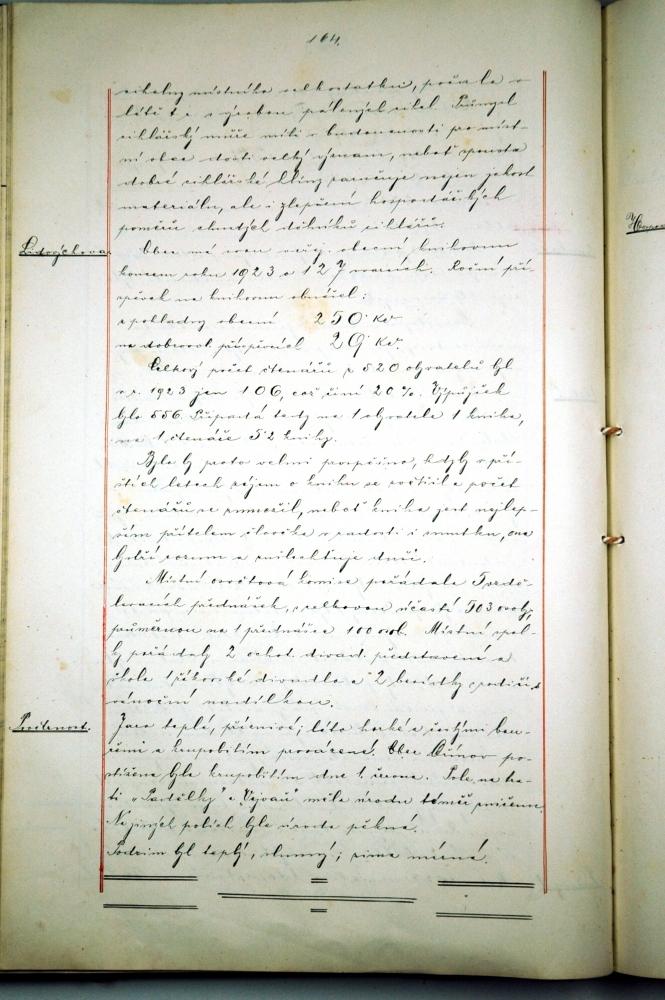 164.
cihelny místního velkostatku, počala v
létě t. r. s výrobou pálených cihel. Průmysl
cihlářský může míti v budoucnosti pro míst-
ní obec dosti velký význam, neboť spousta
dobré cihlářské hlíny zaručuje nejen jakost
materiálu, ale i zlepšení hospodářských
poměrů chudých dělníků cihlářů.
Lidovýchova.
Obec má svou veřej. obecní knihovnu
koncem roku 1923 o 127 svazcích. Roční pří-
spěvek na knihovnu obnášel:
z pokladny obecní 250 Kč
na dobrovol. příspěvcích 29 Kč.
Celkový počet čtenářů z 520 obyvatelů byl
v r. 1923 jen 106, což činí 20%. Výpůjček
bylo 556. Připadá tedy na 1 obyvatele 1 kniha,
na 1 čtenáře 5·2 knihy.
Bylo by proto velmi prospěšno, kdyby v pří-
štích letech zájem o knihu se rozšířil a počet
čtenářů se rozmnožil, neboť kniha jest nejlep-
ším přítelem člověka v radosti i smutku, ona
bystří rozum a zušlechťuje duši.
Místní osvětová komise pořádala 5 vzdě-
lávacích přednášek, s celkovou účastí 503 osob,
průměrnou na 1 přednášce 100 osob. Místní spol-
ky pořádaly 2 ochot. divad. představení a
škola 1 žákovské divadlo a 2 besídky s
vánoční nadílkou.
Povětrnost.
Jaro teplé, příznivé; léto horké s častými bou-
řemi a krupobitím provázené. Obec Čínov po-
stižena byla krupobitím dne 1. června. Pole na tra-
ti „Padělky" a měla úrodu téměř zničenu.
Na jiných polích byla úroda pěkná.
Podzim byl teplý, slunný; zima mírná.